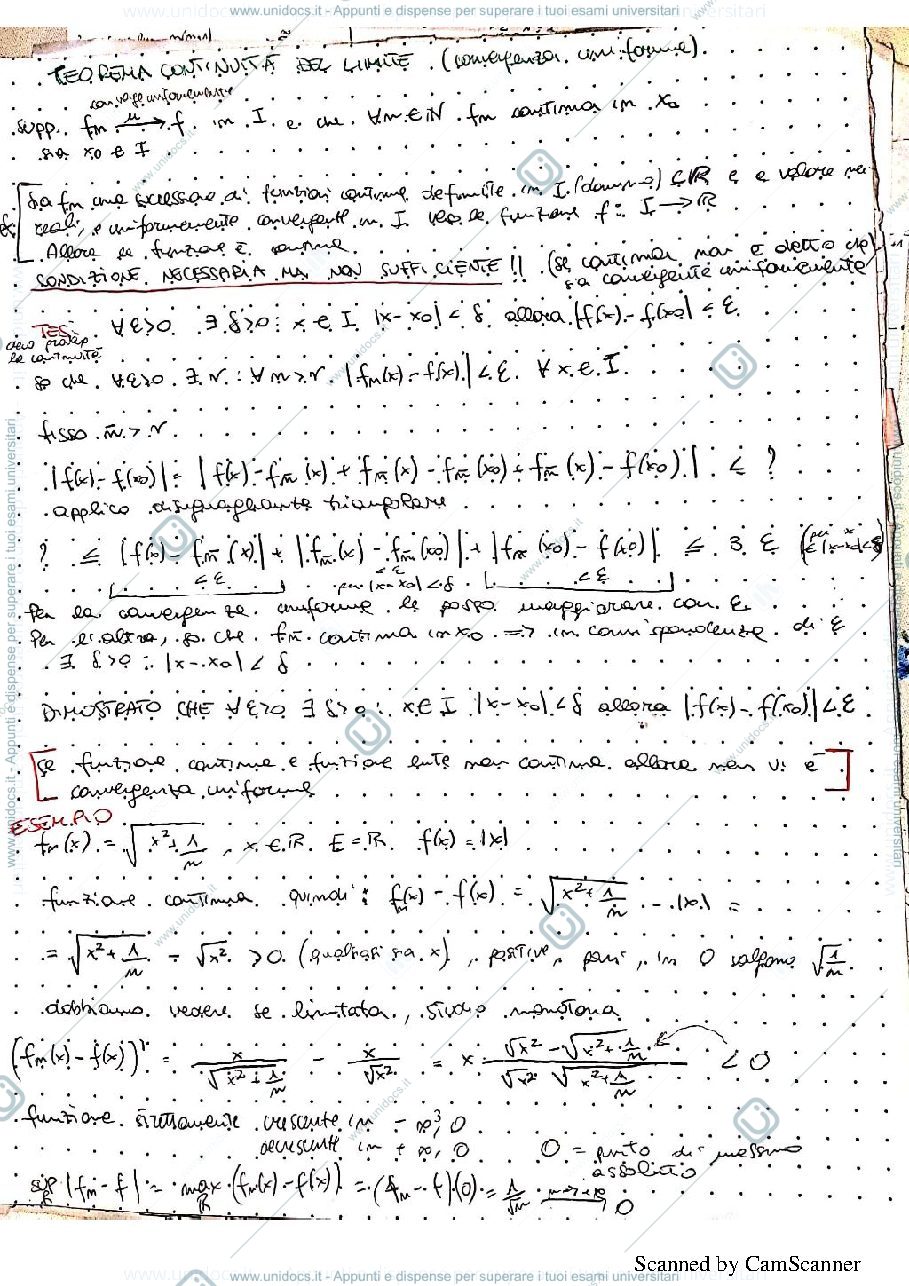 www.unidocs.it - Appunti e dispense per superare i tuoi esami universitari
TEOREMA CONTINUITÀ DEL LIMITE (convergenza uniforme)
converge uniformemente
supp. fm →u f in I e che ∀m∈N fm continua in x0
sia x0 ∈ I
Sia fm una successione di funzioni continue definite in I (dominio) ⊆ R e a valore nei
reali, e uniformemente convergente in I verso la funzione f: I → R
Allora la funzione è continua
CONDIZIONE NECESSARIA MA NON SUFFICIENTE!! (se continua non è detto che
sia convergente uniformemente)
TESI ∀ε>0 ∃ δ>0 : x∈I |x-x0| < δ allora |f(x)-f(x0)| < ε
devo
la continuità
so che ∀ε>0 ∃ν : ∀m>ν |fm(x)-f(x)| < ε ∀x∈I
fisso m̄ > ν
|f(x)-f(x0)| = |f(x)-fm̄(x) + fm̄(x) - fm̄(x0) + fm̄(x) - f(x0)| ≤ ?
applico disuguaglianza triangolare
? ≤ |f(x)-fm̄(x)| + |fm̄(x) - fm̄(x0)| + |fm̄(x0) - f(x0)| ≤ 3 ε
<ε per |x-x0|<δ <ε <ε
Per la convergenza uniforme le posso maggiorare con ε
Per l'altra, so che fm̄ continua in x0 => in corrispondenza di ε
∃ δ>0 : |x-x0| < δ
DIMOSTRATO CHE ∀ε>0 ∃ δ>0 : x∈I |x-x0|<δ allora |f(x)-f(x0)|<ε
se funzione continua e funzione limite non continua allora non vi è
convergenza uniforme
ESEMPIO
fm(x) = √(x²+1/m), x∈R E=R f(x)=|x|
funzione continua quindi: fm(x) - f(x) = √(x²+1/m) - |x| =
= √(x²+1/m) - √x² >0 (qualsiasi sia x), positive, pari, in 0 valgono √(1/m)
dobbiamo vedere se limitata, studio monotonia
(fm(x)-f(x))' = x/√(x²+1/m) - x/√x² = x · (√x² - √(x²+1/m))/(√x² √(x²+1/m)) < 0
funzione strettamente crescente in -∞, 0
decrescente in +∞, 0 0 = punto di massimo
assoluto
sup R |fm-f| = max R (fm(x)-f(x)) = (fm-f)(0) = 1/√m m→+∞ 0
Scanned by CamScanner
www.unidocs.it - Appunti e dispense per superare i tuoi esami universitari